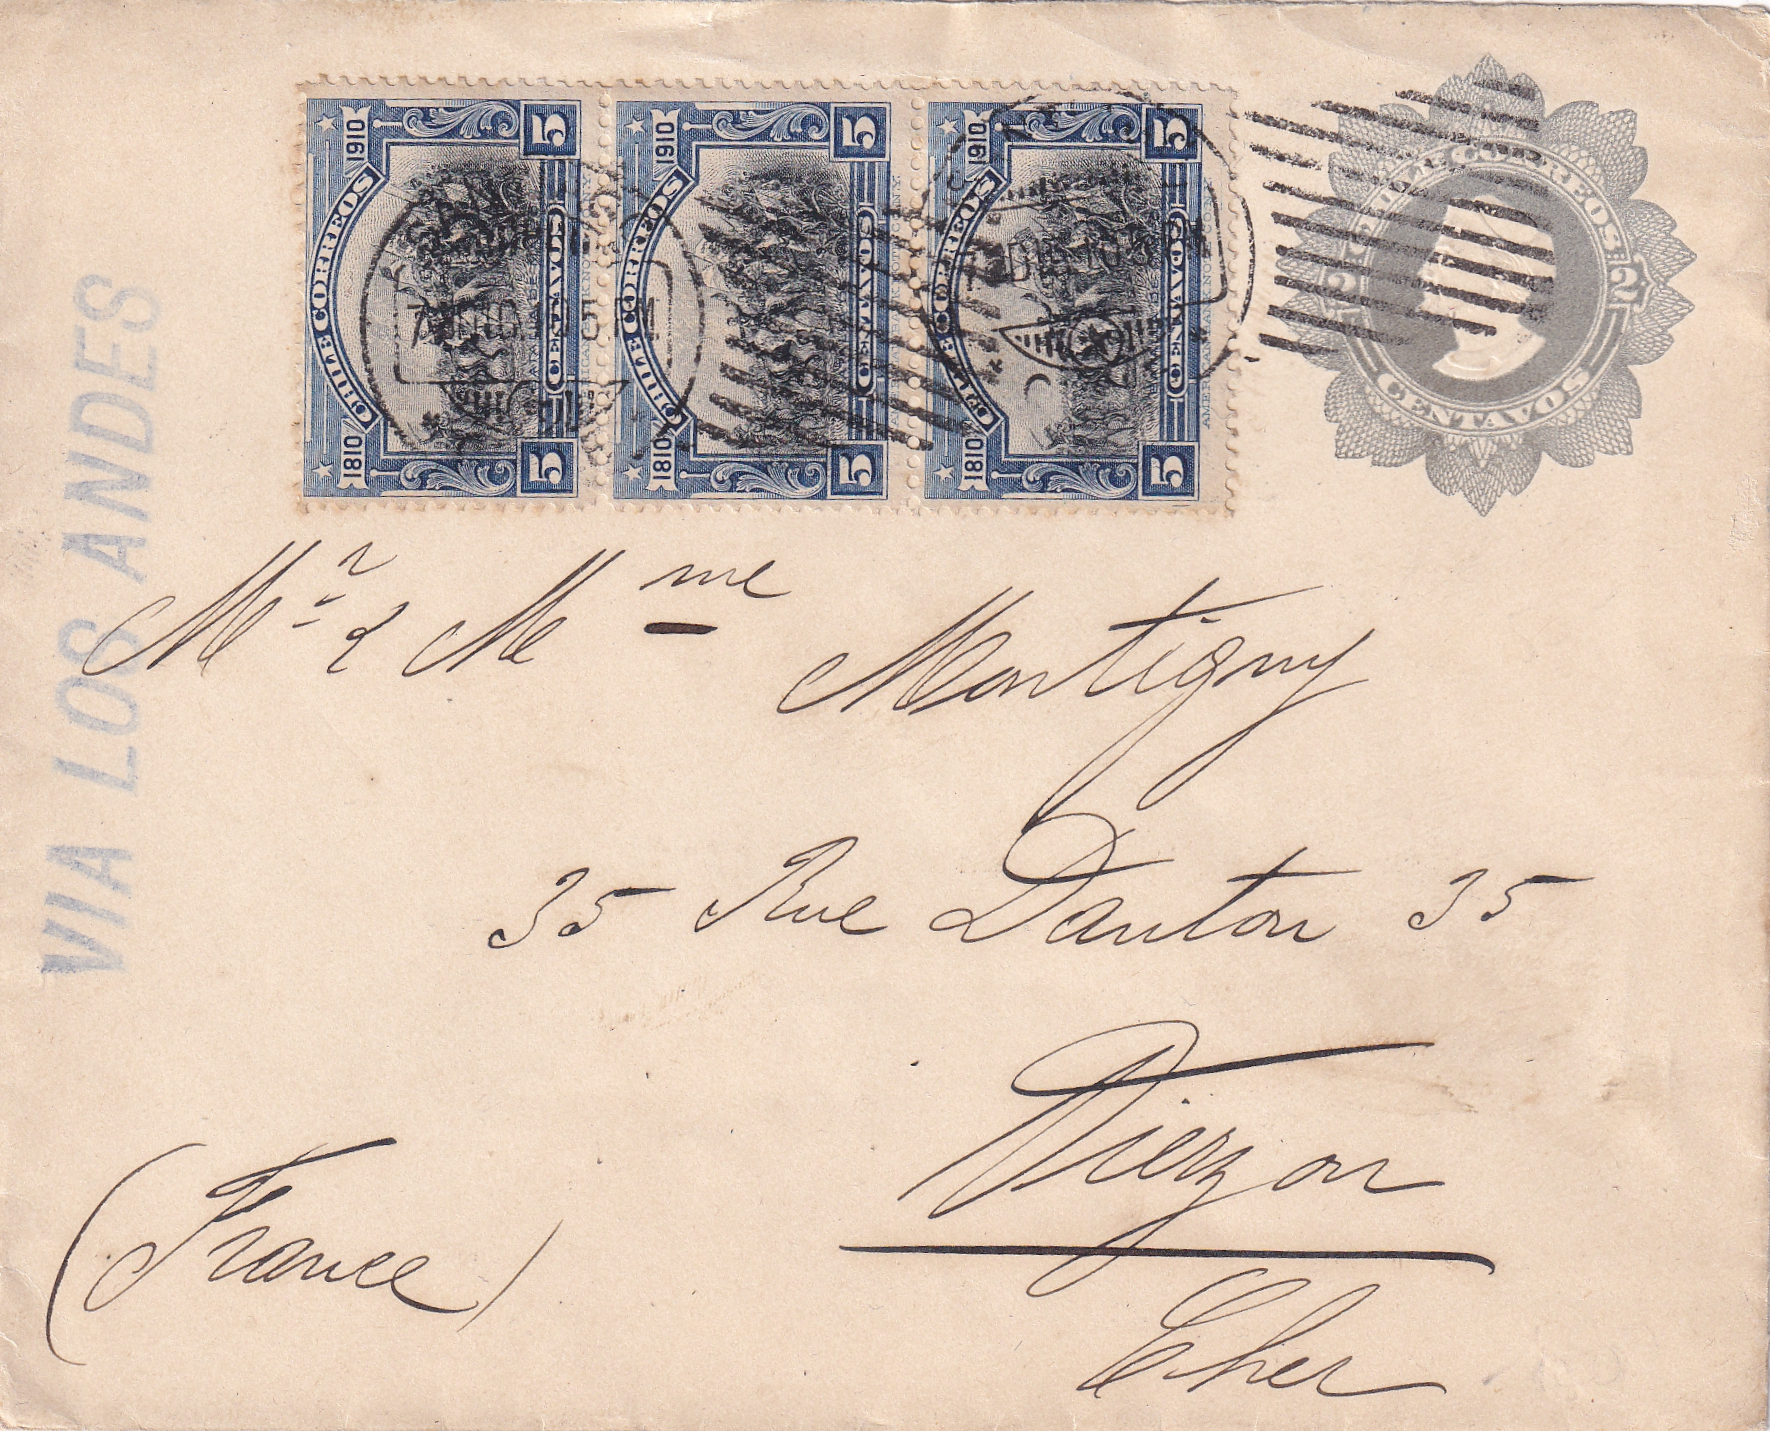 1810 CHILE CORREOS 1910
5 CENTAVOS 5
1810 CHILE CORREOS 1910
5 CENTAVOS 5
1810 CHILE CORREOS 1910
5 CENTAVOS 5
CHILE CORREOS
2 2
CENTAVOS
VIA LOS ANDES
Mr & Mme Montigny
35 Rue Danton 35
Vierzon
(France)
Cher